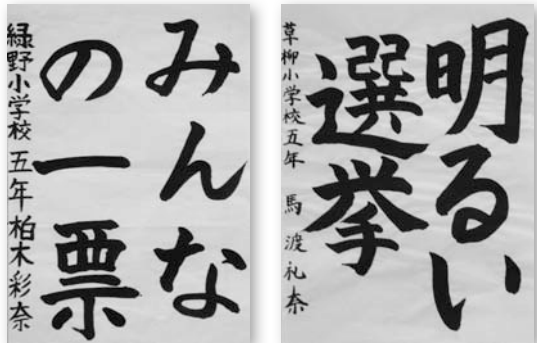 みんな
の一票
緑野小学校 五年 柏木彩奈
明るい
選挙
草柳小学校五年 馬渡礼奈